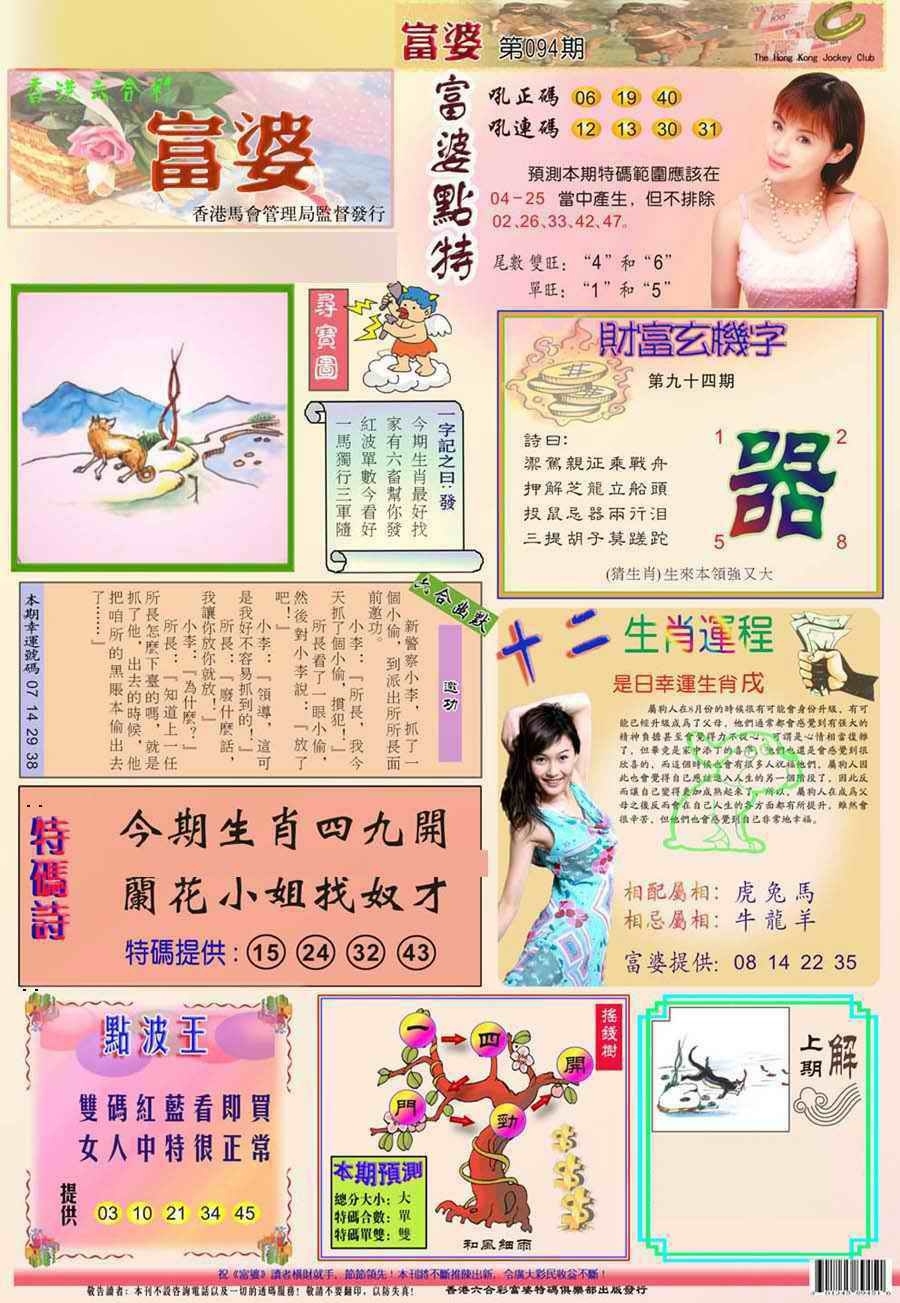 富婆 第094期
The Hong Kong Jockey Club
香港六合彩
富婆
香港馬會管理局監督發行
富婆點特
吼正碼 06 19 40
吼連碼 12 13 30 31
預測本期特碼範圍應該在
04-25 當中產生，但不排除
02、26、33、42、47。
尾數雙旺：“4”和“6”
單旺：“1”和“5”
尋寶圖
一字記之曰：發
今期生肖最好找
家有六畜幫你發
紅波單數今看好
一馬獨行三軍隨
財富玄機字
第九十四期
詩曰：
禦駕親征乘戰舟
押解芝龍立船頭
投鼠忌器兩行淚
三提胡子莫蹉跎
1 2
器
5 8
(猜生肖)生來本領強又大
六合幽默
邀功
新警察小李，抓了一
個小偷，到派出所所長面
前邀功。
小李：『所長，我今
天抓了個小偷，慣犯！』
所長看了一眼小偷，
然後對小李說：『放了
吧！』
小李：『領導，這可
是我好不容易抓到的！』
所長：『廢什麼話，
我讓你放你就放！』
小李：『為什麼？』
所長：『知道上一任
所長怎麼下臺的嗎，就是
抓了他，出去的時候，他
把咱所的黑賬本偷出去
了……』
本期幸運號碼 07 14 29 38
十二生肖運程
是日幸運生肖戌
屬狗人在8月份的時候很有可能會身份升級，有可
能已經升級成爲了父母，他們通常都會感受到有強大的
精神負擔甚至會覺得力不從心，可謂是心情相當復雜
了，但畢竟是家中添丁的喜事，他們也還是會感覺到很
欣喜的，而這個時候也會有很多人祝福他們，屬狗人因
此也會覺得自己應該進入人生的另一個階段了，因此反
而讓自己變得更加成熟起來了，所以，屬狗人在成爲父
母之後反而會在自己人生的各方面都有所提升，雖然會
很辛苦，但他們也會感覺到自己非常地幸福。
相配屬相：虎兔馬
相忌屬相：牛龍羊
富婆提供：08 14 22 35
特碼詩
今期生肖四九開
蘭花小姐找奴才
特碼提供：15 24 32 43
點波王
雙碼紅藍看即買
女人中特很正常
提供 03 10 21 34 45
搖錢樹
一 四 開
門 勁
本期預測
總分大小：大
特碼合數：單
特碼單雙：雙
和風細雨
上期解
祝《富婆》讀者橫財就手，節節領先！本刊將不斷推陳出新，令廣大彩民收益不斷！
敬告讀者：本刊不設咨詢電話以及一切的透碼服務！敬請不要翻印，以防失真！ 香港六合彩富婆特碼俱樂部出版發行